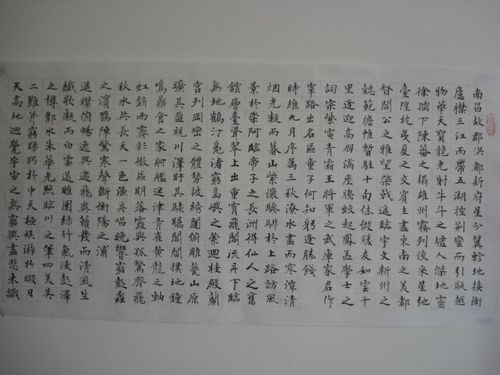 南昌故郡洪都新府星分翼軫地接衡
廬襟三江而帶五湖控荊蠻而引甌越
物華天寶龍光射牛斗之墟人傑地靈
徐孺下陳蕃之榻雄州霧列俊采星弛
臺隍枕夷夏之交賓主盡東南之美都
督閻公之雅望棨戟遙臨宇文新州之
懿範襜帷暫駐十旬休假勝友如雲千
里逢迎高朋滿座騰蛟起鳳孟學士之
詞宗紫電青霜王將軍之武庫家君作
宰路出名區童子何知躬逢勝餞
時維九月序屬三秋潦水盡而寒潭清
烟光凝而暮山紫儼驂騑於上路訪風
景於崇阿臨帝子之長洲得仙人之舊
館層臺聳翠上出重霄飛閣流丹下臨
無地鶴汀鳧渚窮島嶼之縈迴桂殿蘭
宮列岡巒之體勢披繡闥俯雕甍山原
曠其盈視川澤盱其駭矚閭閻撲地鐘
鳴鼎食之家舸艦迷津青雀黃龍之軸
虹銷雨霽彩徹區明落霞與孤鶩齊飛
秋水共長天一色漁舟唱晚響窮彭蠡
之濱鴈陣驚寒聲斷衡陽之浦
遙襟俯暢逸興遄飛爽籟發而清風生
纖歌凝而白雲遏睢園綠竹氣凌彭澤
之樽鄴水朱華光照臨川之筆四美具
二難并窮睇眄於中天極娛遊於暇日
天高地迥覺宇宙之無窮興盡悲來識